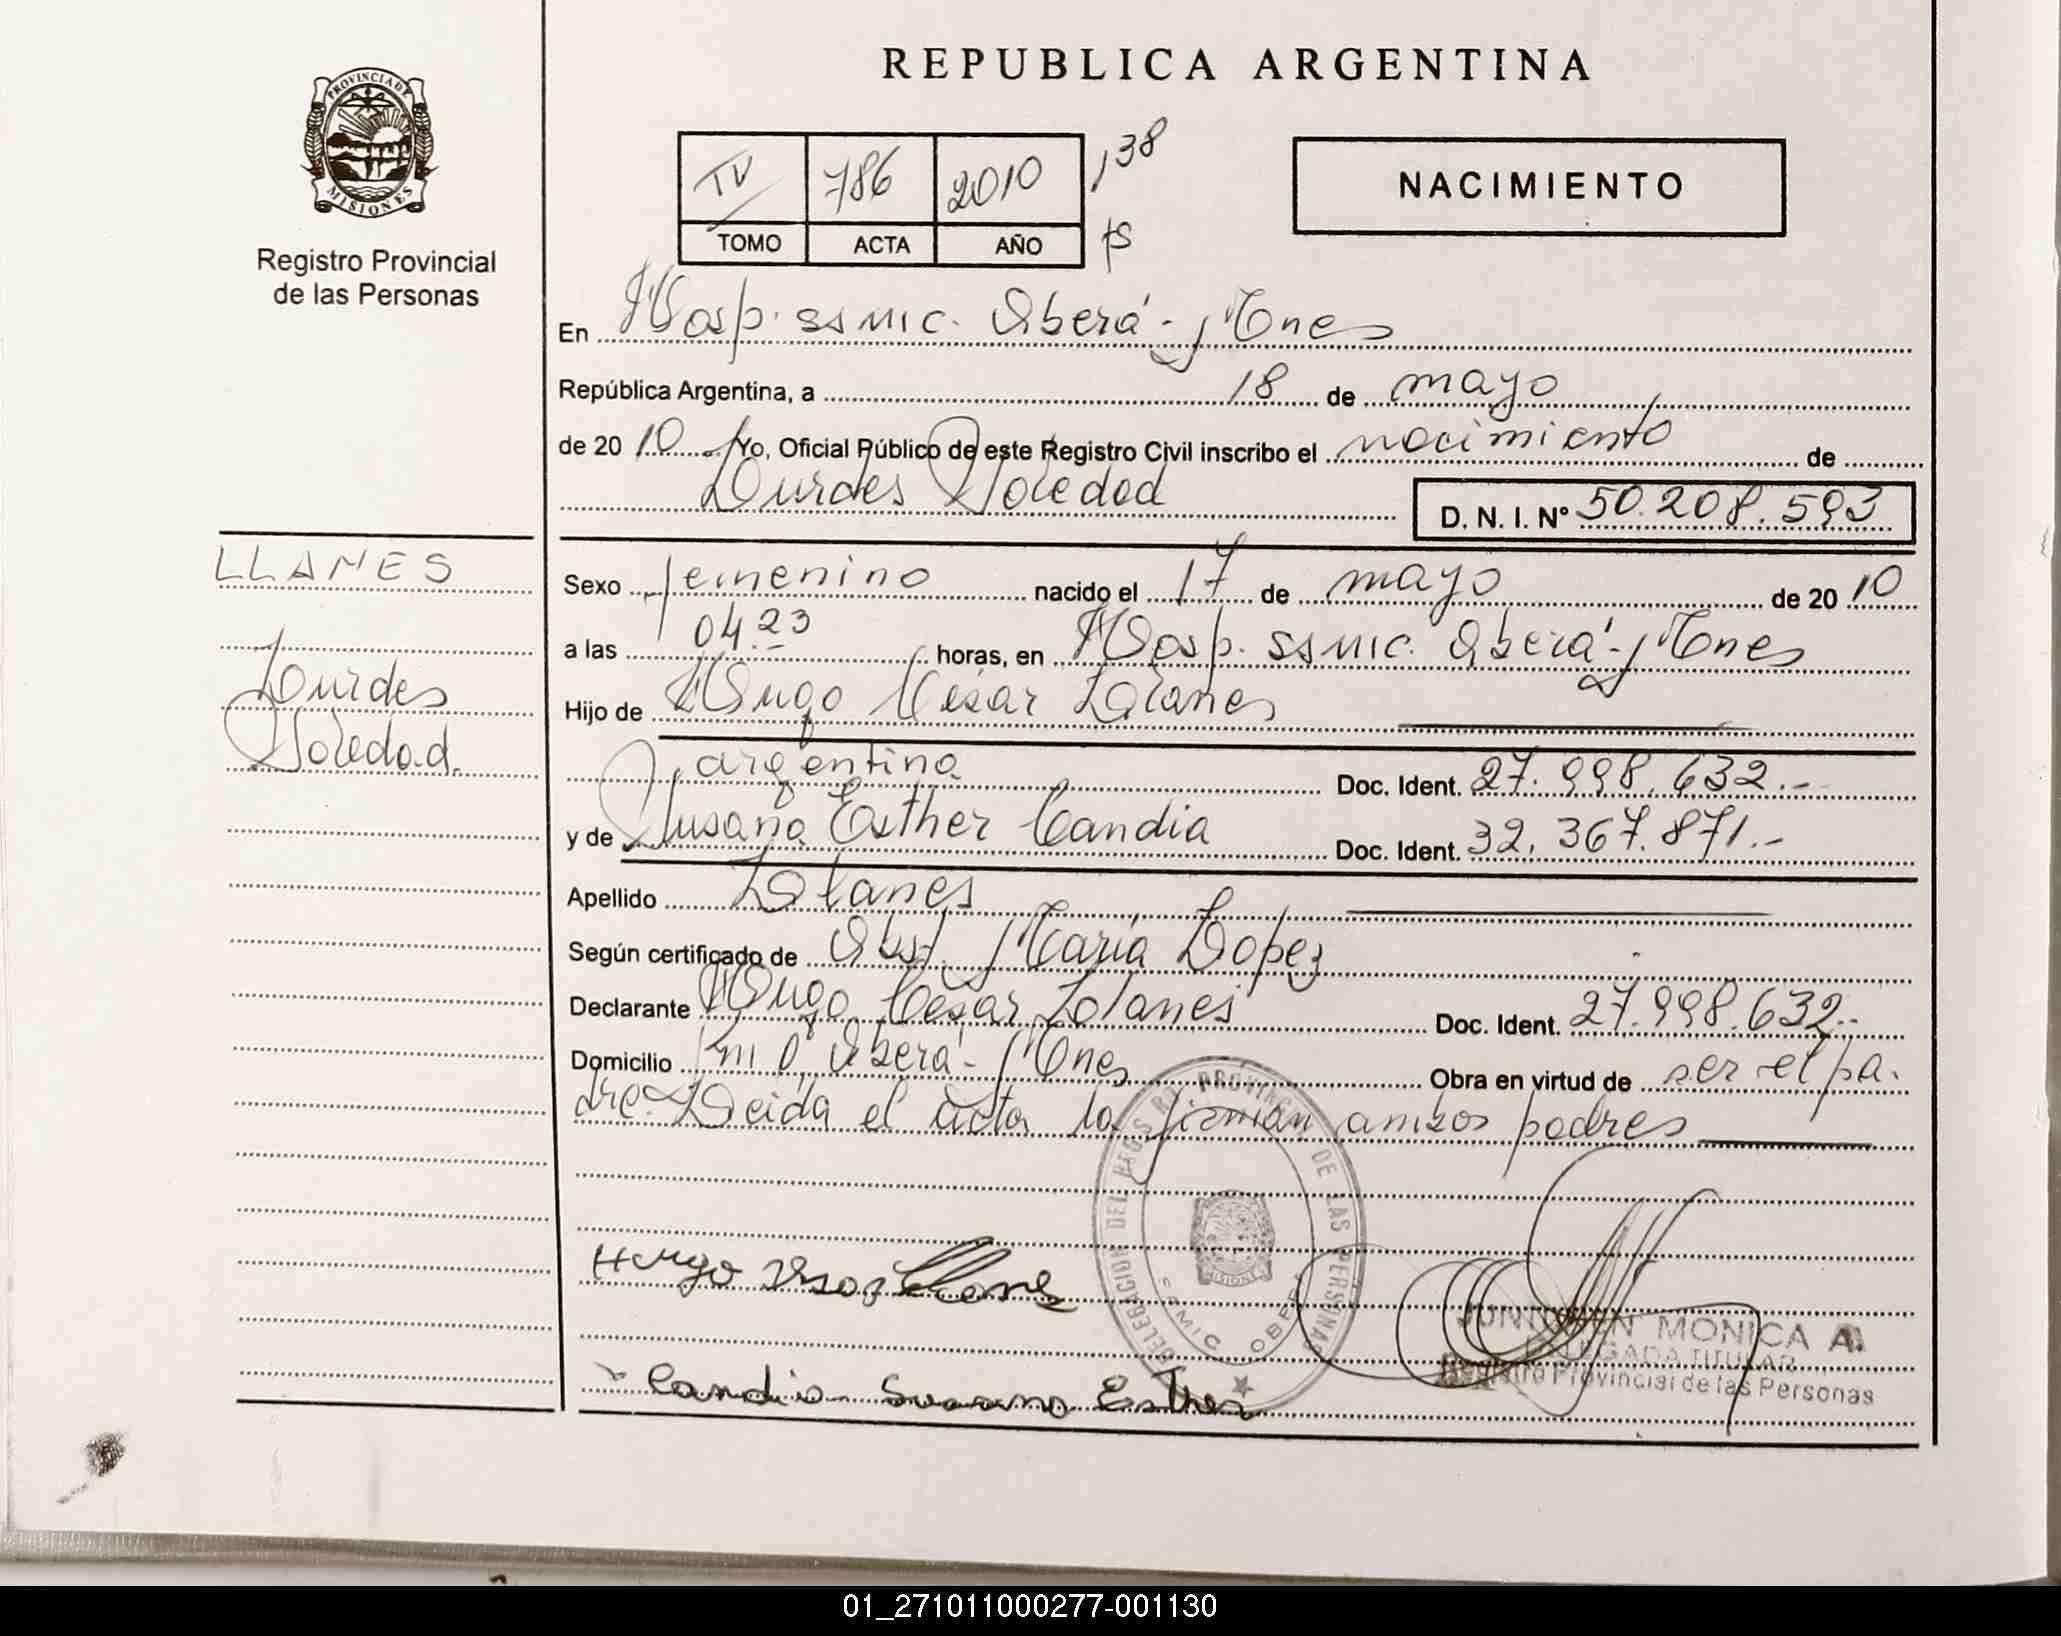 REPUBLICA ARGENTINA
PROVINCIA DE
MISIONES
Registro Provincial
de las Personas
TV 786 2010 138
TOMO ACTA AÑO ts
NACIMIENTO
En Hosp. SSMIC. Oberá - Mnes
República Argentina, a 18 de mayo
de 2010 Yo, Oficial Público de este Registro Civil inscribo el nacimiento de
Lourdes Soledad D. N. I. Nº 50.208.593
LLANES
Lourdes
Soledad.
Sexo femenino nacido el 17 de mayo de 2010
a las 04.23 horas, en Hosp. SSMIC. Oberá - Mnes
Hijo de Hugo César Llanes
argentina Doc. Ident. 27.998.632.-
y de Susana Esther Candia Doc. Ident. 32.367.871.-
Apellido Llanes
Según certificado de Obst. María Lopez
Declarante Hugo César Llanes Doc. Ident. 27.998.632.-
Domicilio Oberá - Mnes Obra en virtud de ser el pa.
dre. Leida el acta la firman ambos padres
DELEGACION DEL REGIS. PROVINCIAL DE LAS PERSONAS
SSMIC OBERA
MISIONES
Hugo Llanes
Candia Susana Esther
MONICA A.
DELEGADA TITULAR
Registro Provincial de las Personas
01_271011000277-001130